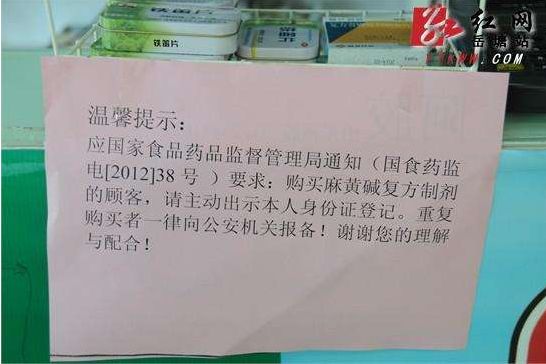 铁笛片
红网
岳塘站
温馨提示：
应国家食品药品监督管理局通知（国食药监
电[2012]38 号 ）要求：购买麻黄碱复方制剂
的顾客，请主动出示本人身份证登记。重复
购买者一律向公安机关报备！谢谢您的理解
与配合！